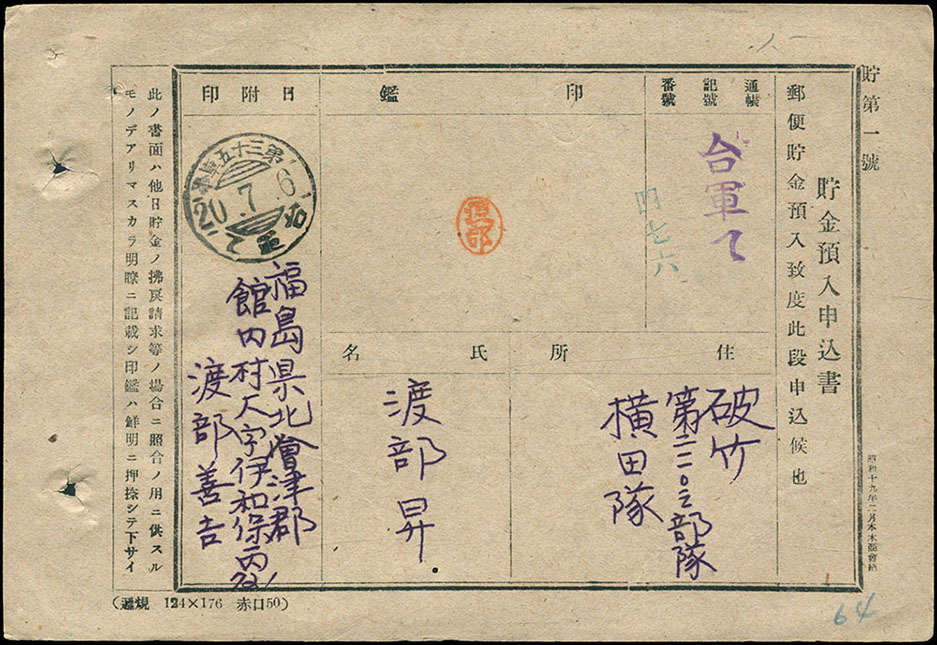 貯第一號
貯金預入申込書
郵便貯金預入致度此段申込候也
通帳
記號
番號
台軍て
四七六
印
鑑
渡部
住
所
破竹
第二二〇三部隊
横田隊
氏
名
渡部昇
日
附
印
20.7.6
台軍て
福島県北會津郡
館内村大字伊和保丙
渡部善吉
此ノ書面ハ他日貯金ノ拂戻請求等ノ場合ニ照合ノ用ニ供スル
モノデアリマスカラ明瞭ニ記載シ印鑑ハ鮮明ニ押捺シテ下サイ
124×176 赤口50)
64